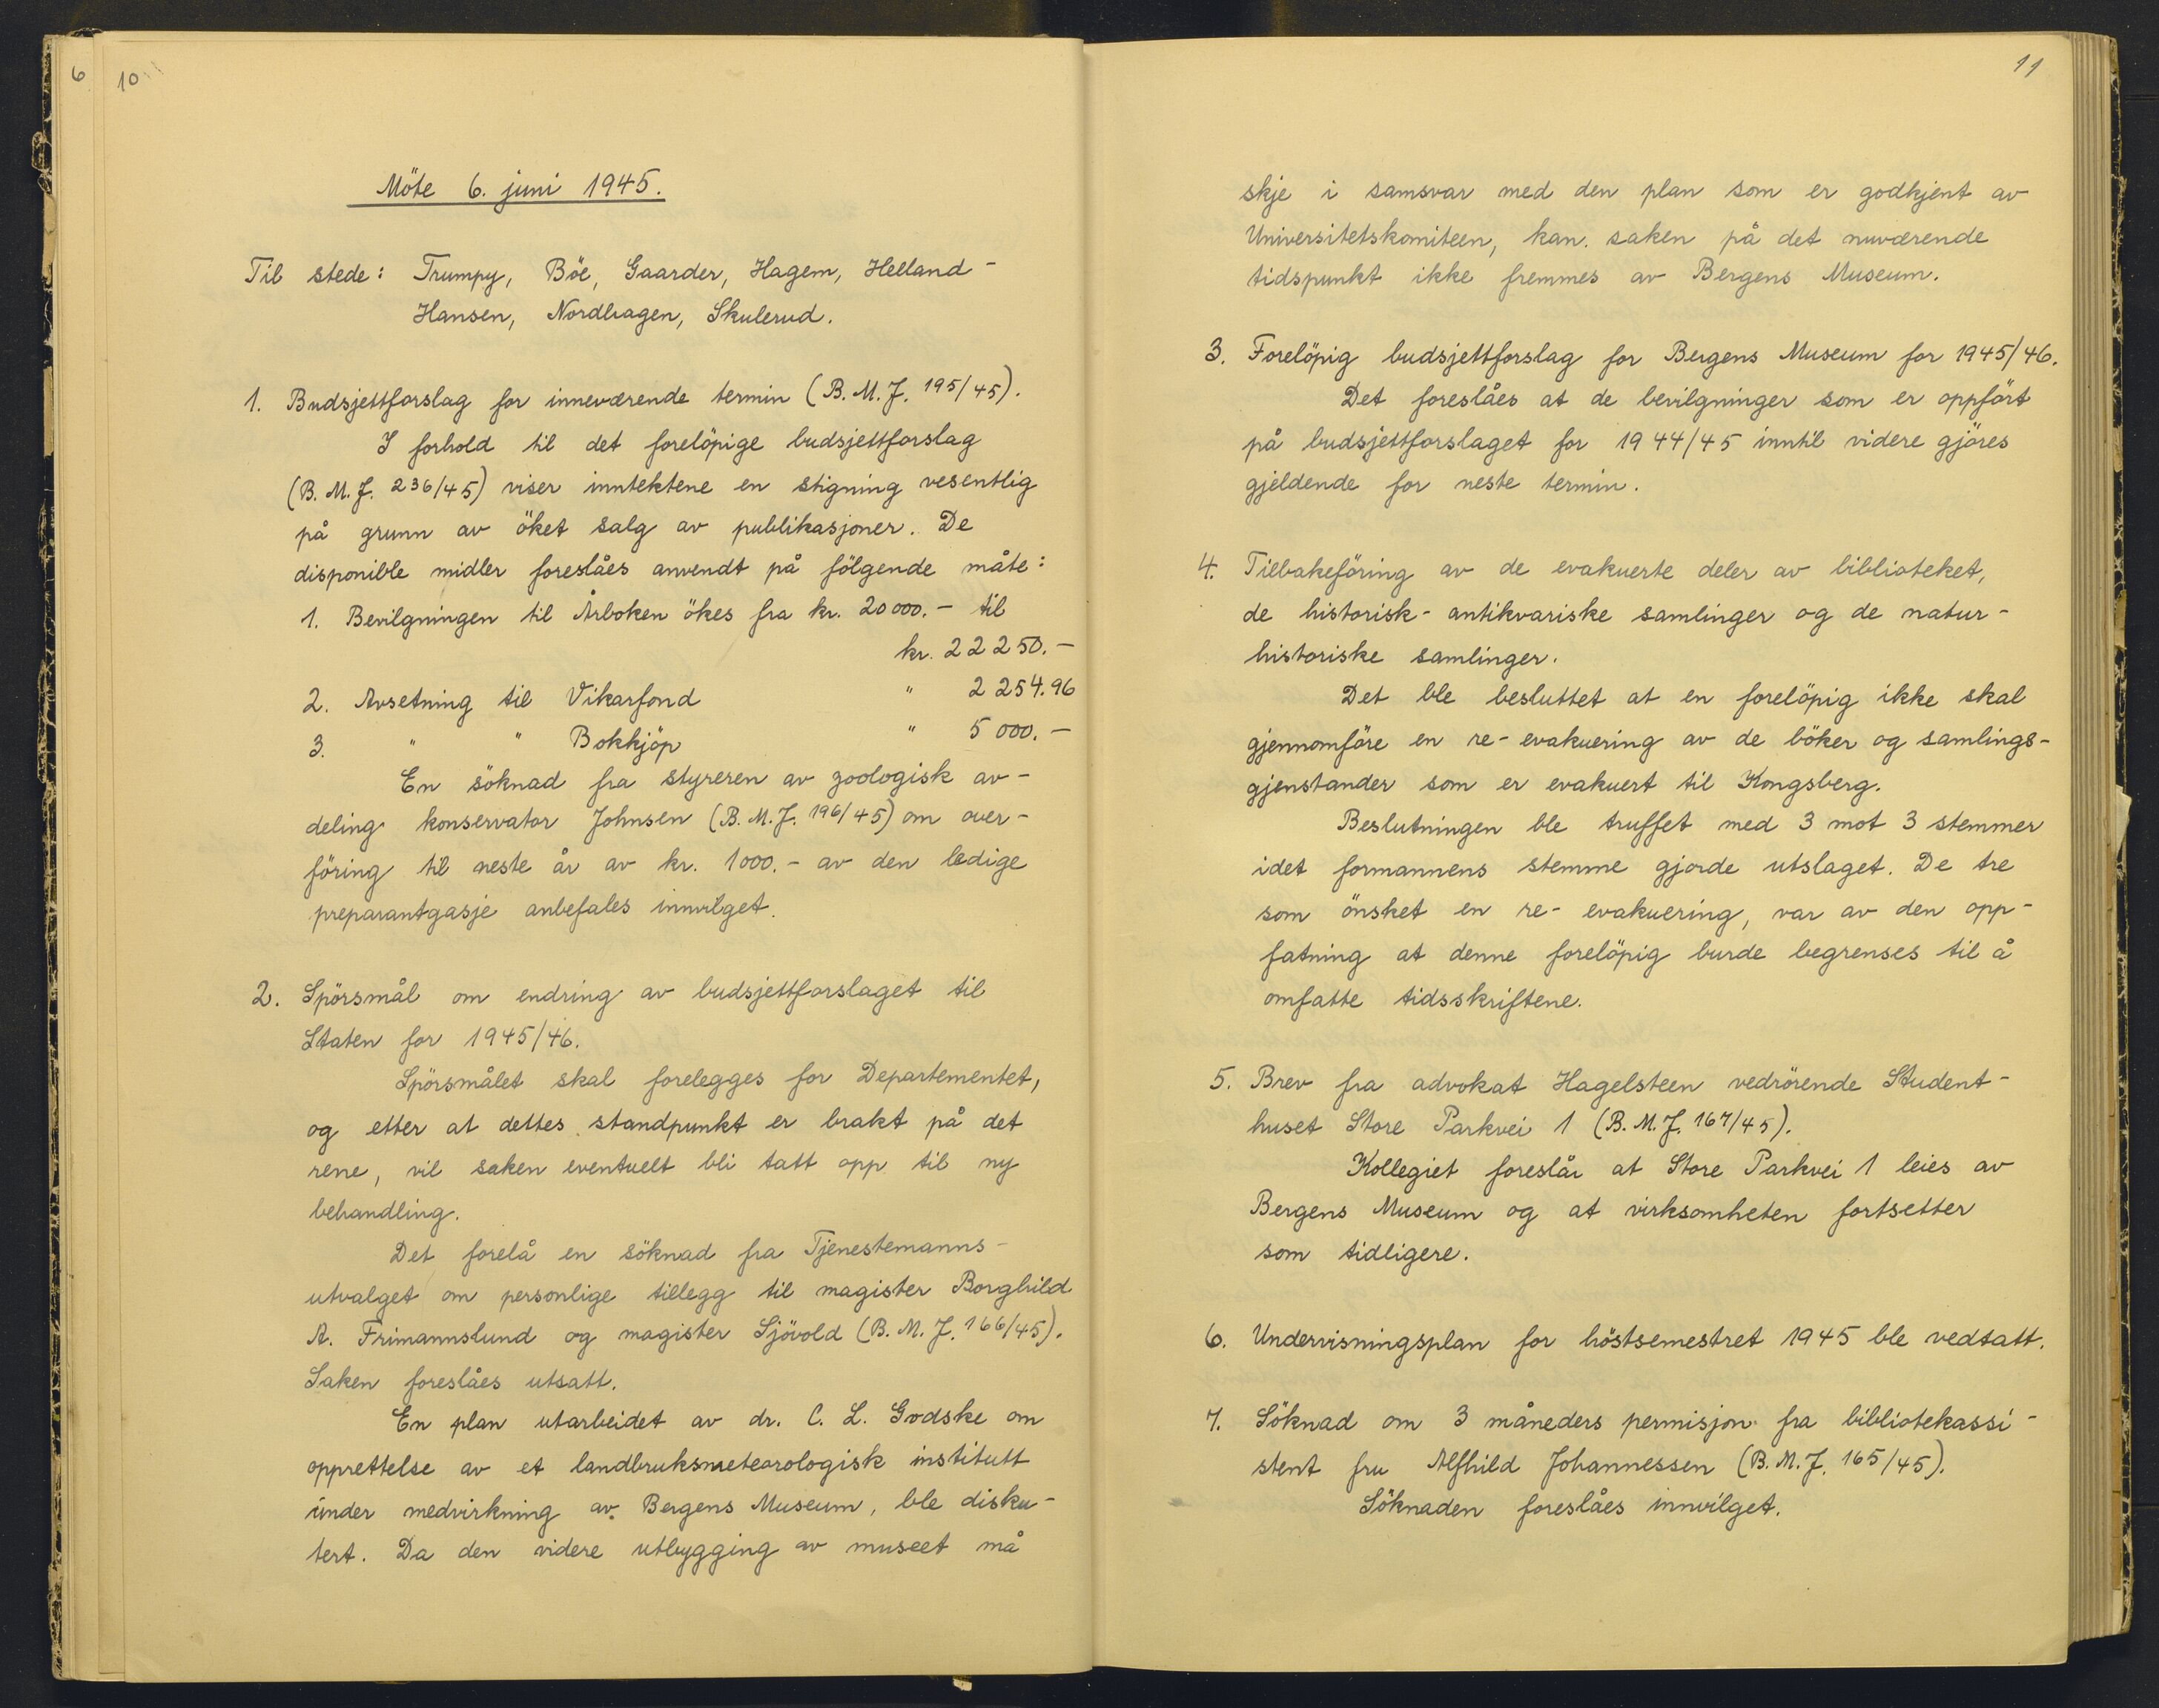 6
10
Möte 6. juni 1945.
Til stede: Trumpy, Böe, Gaarder, Hagem, Helland-
Hansen, Nordhagen, Skulerud.
1. Budsjettforslag for inneværende termin (B. M. J. 195/45).
I forhold til det forelöpige budsjettforslag
(B. M. J. 236/45) viser inntektene en stigning vesentlig
på grunn av öket salg av publikasjoner. De
disponible midler foreslåes anvendt på fölgende måte:
1. Bevilgningen til Årboken ökes fra kr. 20 000.- til
kr. 22 250.-
2. Avsetning til Vikarfond " 2 254.96
3. " " Bokkjöp " 5 000.-
En söknad fra styreren av zoologisk av-
deling konservator Johnsen (B. M. J. 196/45) om over-
föring til neste år av kr. 1000.- av den ledige
preparantgasje anbefales innvilget.
2. Spörsmål om endring av budsjettforslaget til
Staten for 1945/46.
Spörsmålet skal forelegges for Departementet,
og etter at dettes standpunkt er brakt på det
rene, vil saken eventuelt bli tatt opp til ny
behandling.
Det forelå en söknad fra Tjenestemanns-
utvalget om personlige tillegg til magister Borghild
A. Frimannslund og magister Sjövold (B. M. J. 166/45).
Saken foreslåes utsatt.
En plan utarbeidet av dr. C. L. Godske om
opprettelse av et landbruksmeteorologisk institutt
under medvirkning av Bergens Museum, ble disku-
tert. Da den videre utbygging av museet må
11
skje i samsvar med den plan som er godkjent av
Universitetskomiteen, kan saken på det nuværende
tidspunkt ikke fremmes av Bergens Museum.
3. Forelöpig budsjettforslag for Bergens Museum for 1945/46.
Det foreslåes at de bevilgninger som er oppfört
på budsjettforslaget for 1944/45 inntil videre gjöres
gjeldende for neste termin.
4. Tilbakeföring av de evakuerte deler av biblioteket,
de historisk-antikvariske samlinger og de natur-
historiske samlinger.
Det ble besluttet at en forelöpig ikke skal
gjennomföre en re-evakuering av de böker og samlings-
gjenstander som er evakuert til Kongsberg.
Beslutningen ble truffet med 3 mot 3 stemmer
idet formannens stemme gjorde utslaget. De tre
som önsket en re-evakuering, var av den opp-
fatning at denne forelöpig burde begrenses til å
omfatte tidsskriftene.
5. Brev fra advokat Hagelsteen vedrörende Student-
huset Store Parkvei 1 (B. M. J. 167/45).
Kollegiet foreslår at Store Parkvei 1 leies av
Bergens Museum og at virksomheten fortsetter
som tidligere.
6. Undervisningsplan for höstsemestret 1945 ble vedtatt.
7. Söknad om 3 måneders permisjon fra bibliotekassi-
stent fru Alfhild Johannessen (B. M. J. 165/45).
Söknaden foreslåes innvilget.